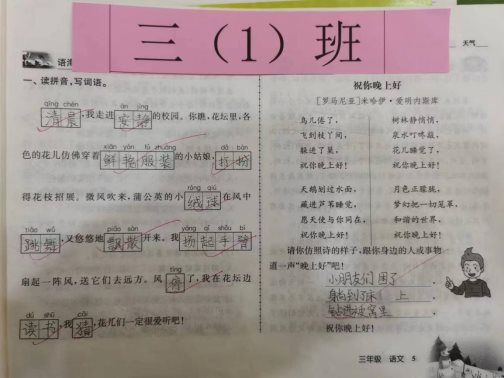 三（1）班
天气
语
一、读拼音，写词语。
qīng chén ān jìng
清晨，我走进安静的校园。你瞧，花坛里，各
xiān yàn fú zhuāng dǎ bàn
色的花儿仿佛穿着鲜艳服装的小姑娘，打扮
róng qiú
得花枝招展。微风吹来，蒲公英的小绒球在风中
tiào wǔ piāo sàn yáng qǐ shǒu bì
跳舞，又悠悠地飘散开来。我扬起手臂
tíng
扇起一阵风，送它们去远方。风停了，我在花坛边
dú shū cāi
读书，我猜花儿们一定很爱听吧！
祝你晚上好
［罗马尼亚］米哈伊·爱明内斯库
鸟儿倦了，
飞到枝丫间，
躲进了巢，
祝你晚上好！
树林静悄悄，
泉水叮咚敲，
花儿睡觉了，
祝你晚上好！
天鹅划过水面，
藏进芦苇睡觉，
愿天使与你同在，
祝你晚上好！
月色正朦胧，
梦幻把一切笼罩，
和谐的世界，
祝你晚上好！
请你仿照诗的样子，跟你身边的人或事物
道一声“晚上好”吧！
小朋友们困了，
躺到了床上，
钻进被窝里，
祝你晚上好！
三年级 语文 5